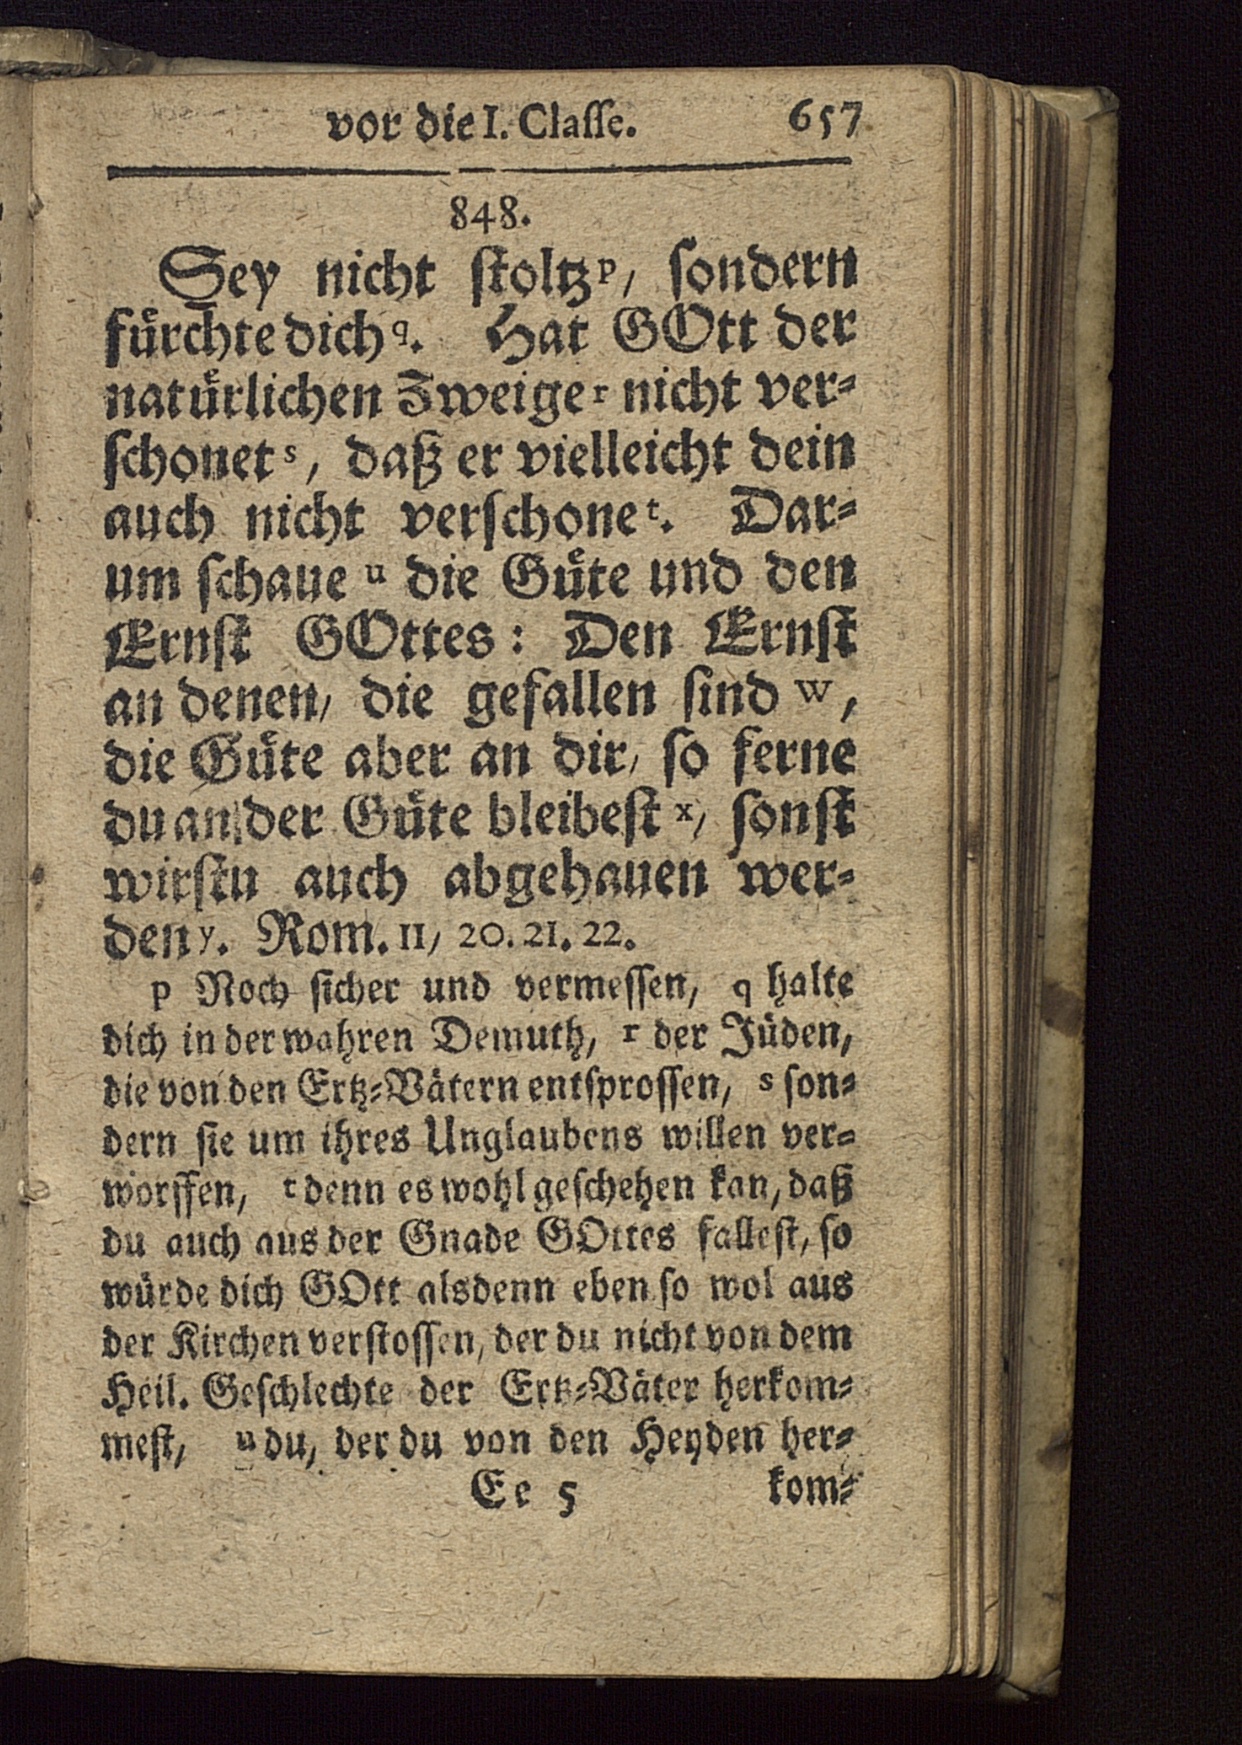 vor die I. Classe. 657
848.
Sey nicht stoltz p, sondern
fürchte dich q. Hat GOtt der
natürlichen Zweige r nicht ver-
schonet s, daß er vielleicht dein
auch nicht verschone t. Dar-
um schaue u die Güte und den
Ernst GOttes: Den Ernst
an denen, die gefallen sind w,
die Güte aber an dir, so ferne
du an der Güte bleibest x, sonst
wirstu auch abgehauen wer-
den y. Rom. 11, 20. 21. 22.
p Noch sicher und vermessen, q halte
dich in der wahren Demuth, r der Jüden,
die von den Ertz-Vätern entsprossen, s son-
dern sie um ihres Unglaubens willen ver-
worffen, t denn es wohl geschehen kan, daß
du auch aus der Gnade GOttes fallest, so
würde dich GOtt alsdenn eben so wol aus
der Kirchen verstossen, der du nicht von dem
Heil. Geschlechte der Ertz-Väter herkom-
mest, u du, der du von den Heyden her-
Ee 5 kom-